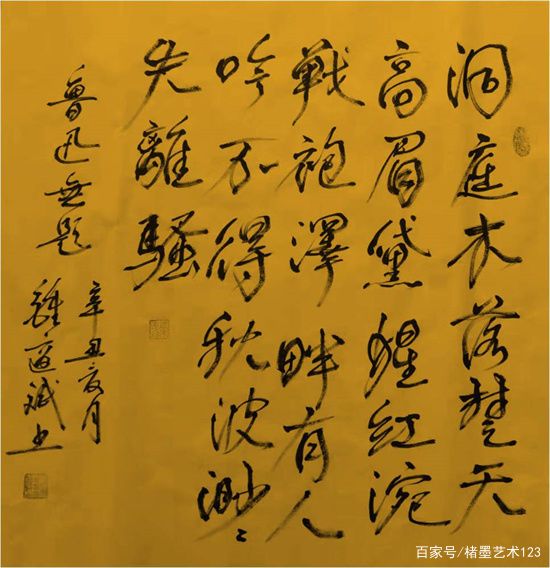 洞庭木落楚天
高眉黛猩红涴
戰袍澤畔有人
吟不得秋波渺〻
失離騷
魯迅無題
辛丑亥月
鍾道斌书
百家号/楮墨艺术123